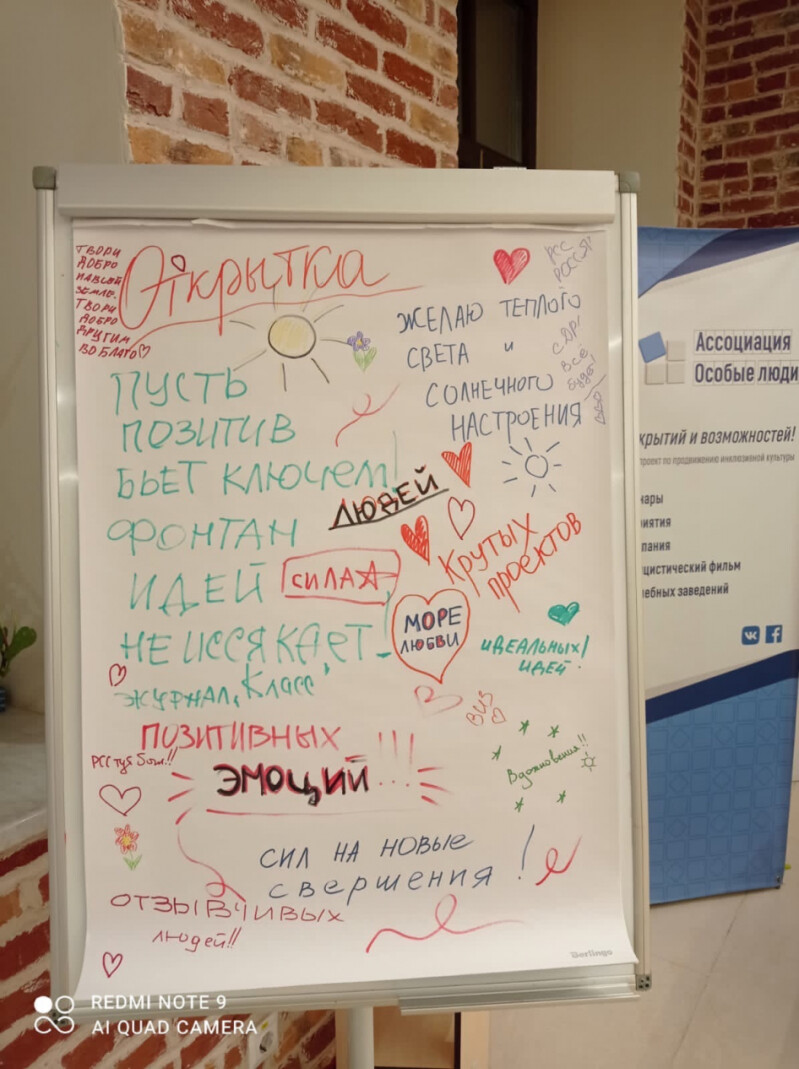 ТВОРИ
ДОБРО
НА ВСЕЙ
ЗЕМЛЕ,
ТВОРИ
ДОБРО
ДРУГИМ
ВО БЛАГО
Открытка
РСС
РОССИЯ!
ЖЕЛАЮ ТЕПЛОГО
СВЕТА и
СОЛНЕЧНОГО
НАСТРОЕНИЯ
всё
будет!
ПУСТЬ
ПОЗИТИВ
БЬЕТ КЛЮЧЕМ!
ФОНТАН
ИДЕЙ
НЕ ИССЯКАЕТ!
ЖУРНАЛ „Класс”
ЛЮДЕЙ
СИЛА
Крутых
проектов
МОРЕ
ЛЮБВИ
ИДЕАЛЬНЫХ
ИДЕЙ!
ПОЗИТИВНЫХ
ЭМОЦИЙ!!!
Вдохновения!!
СИЛ НА НОВЫЕ
СВЕРШЕНИЯ!
ОТЗЫВЧИВЫХ
людей!!
Berlingo
Ассоциация
Особые люди
крытий и возможностей!
проект по продвижению инклюзивной культуры
нары
иятия
пания
цистический фильм
чебных заведений
REDMI NOTE 9
AI QUAD CAMERA